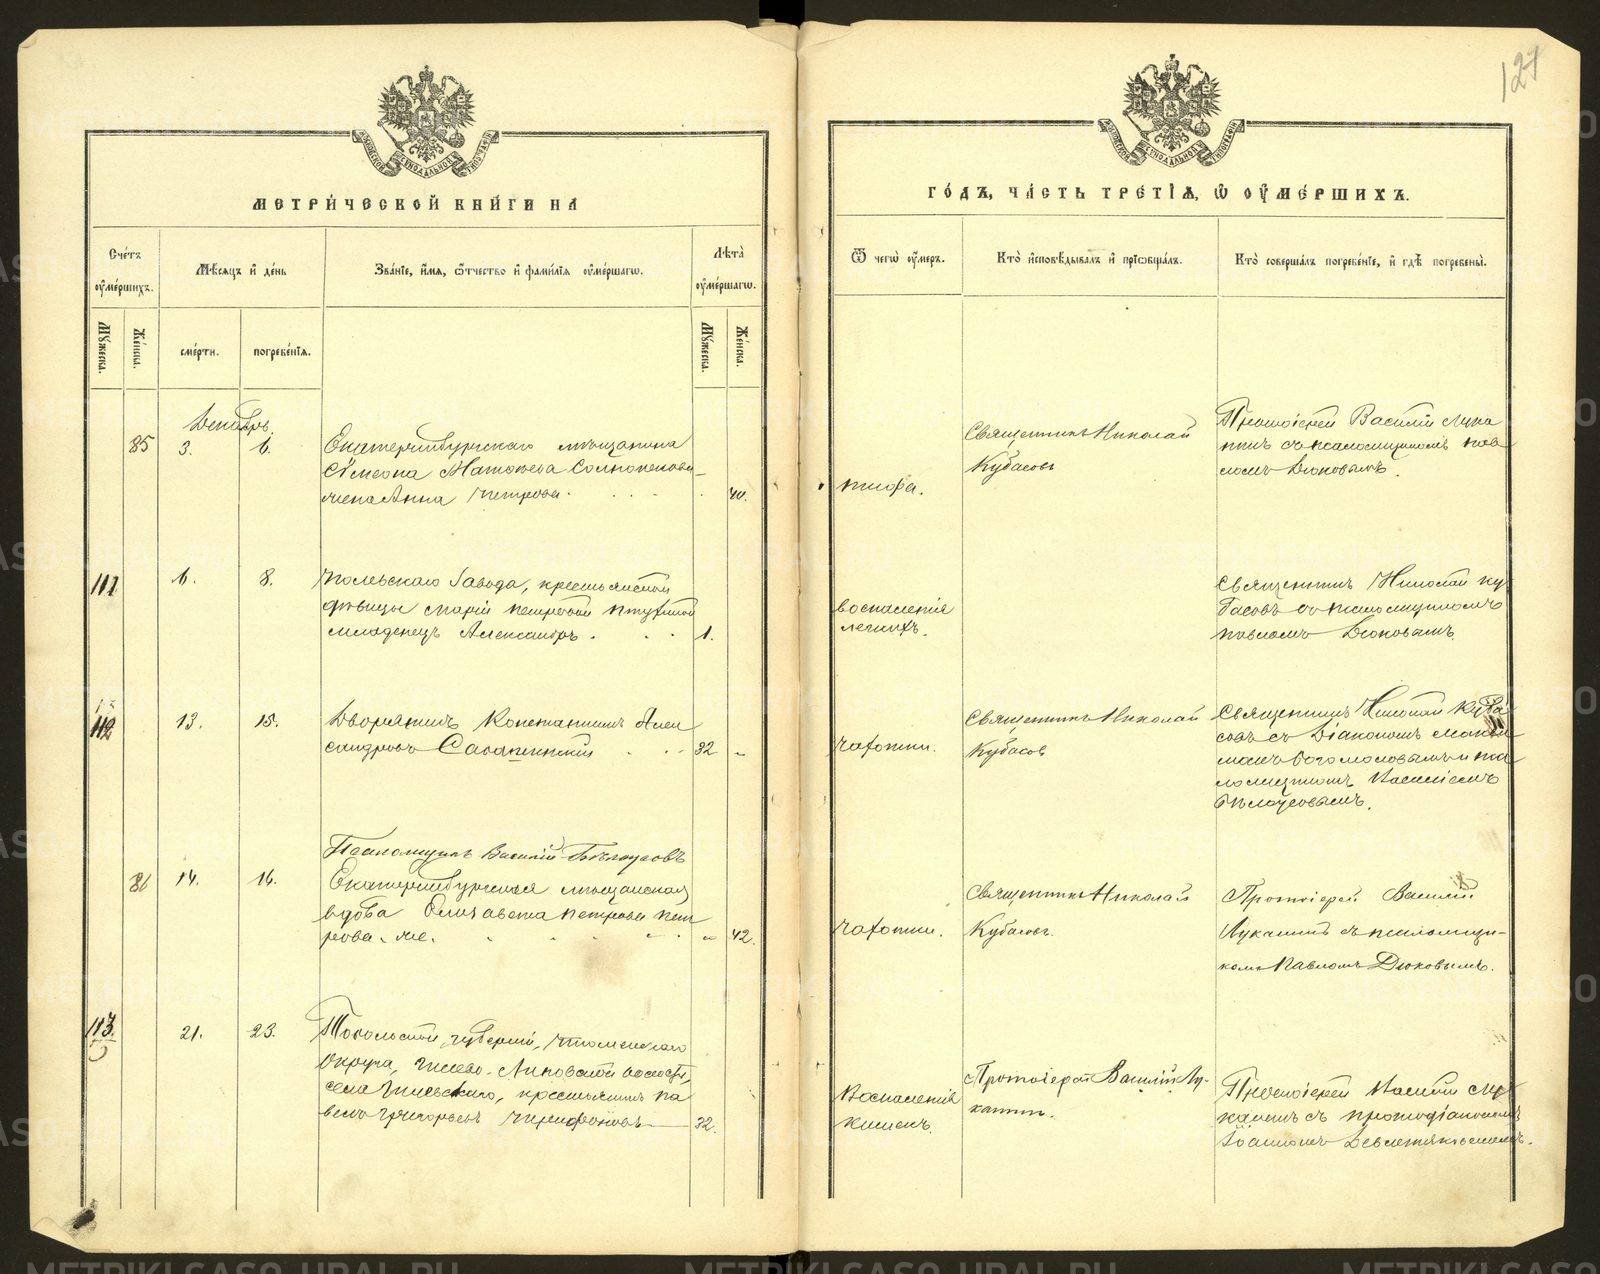 127
МЕТРИ́ЧЕСКОЙ КНИ́ГИ НА
ГО́ДЪ, ЧА́СТЬ ТРЕ́ТІѦ, Ѡ ОУМЕ́РШИХЪ.
Сче́тъ оуме́ршихъ.
Мꙋжеска.
Же́нска.
Мѣ́сѧцъ и де́нь
сме́рти.
погребе́нїѧ.
Зва́нїе, и́мѧ, ѻ́тчество и фами́лїѧ оуме́ршагѡ.
Лѣта̀ оуме́ршагѡ.
Мꙋжеска.
Же́нска.
Ѿ чегѡ̀ оу́меръ.
Кто̀ исповѣ́дывалъ и прїѡбща́лъ.
Кто̀ соверша́лъ погребе́нїе, и гдѣ̀ погребены̀.
Декабрь.
85 3. 6.
Екатеринбургскаго мѣщанина
Сѵмеона Матѳеева
жена Анна Петрова.
40.
тифа.
Священникъ Николай
Кубасовъ
Протоіерей Василій Лука
нинъ съ псаломщикомъ Пав
ломъ Дюковымъ.
111 6. 8.
Полевскаго завода, крестьянской
дѣвицы Маріи Петровой
младенецъ Александръ.
1.
воспаленія
легкихъ.
Священникъ Николай Ку
басовъ съ псаломщикомъ
Павломъ Дюковымъ.
112 13. 15.
Дворянинъ Константинъ Алек
сандровъ
32
чахотки.
Священникъ Николай
Кубасов
Священникъ Николай Куба
совъ съ Діакономъ
Богомоловымъ и пса
ломщикомъ Василіемъ
Бѣлоусовымъ.
Псаломщикъ Василій Бѣлоусовъ
86 14. 16.
Екатеринбургская мѣщанская
вдова Елизавета Петрова Пет
рова.
42.
чахотки.
Священникъ Николай
Кубасовъ.
Протоіерей Василій
Луканинъ съ псаломщи-
комъ Павломъ Дюковымъ.
113. 21. 23.
Тобольской губерніи, Тюменскаго
округа, волости,
села крестьянинъ Па
велъ Григорьевъ
32.
Воспаленія
кишекъ.
Протоіерей Василій Лу-
канинъ.
Протоіерей Василій Лу
канинъ съ протодіакономъ
Іоанномъ